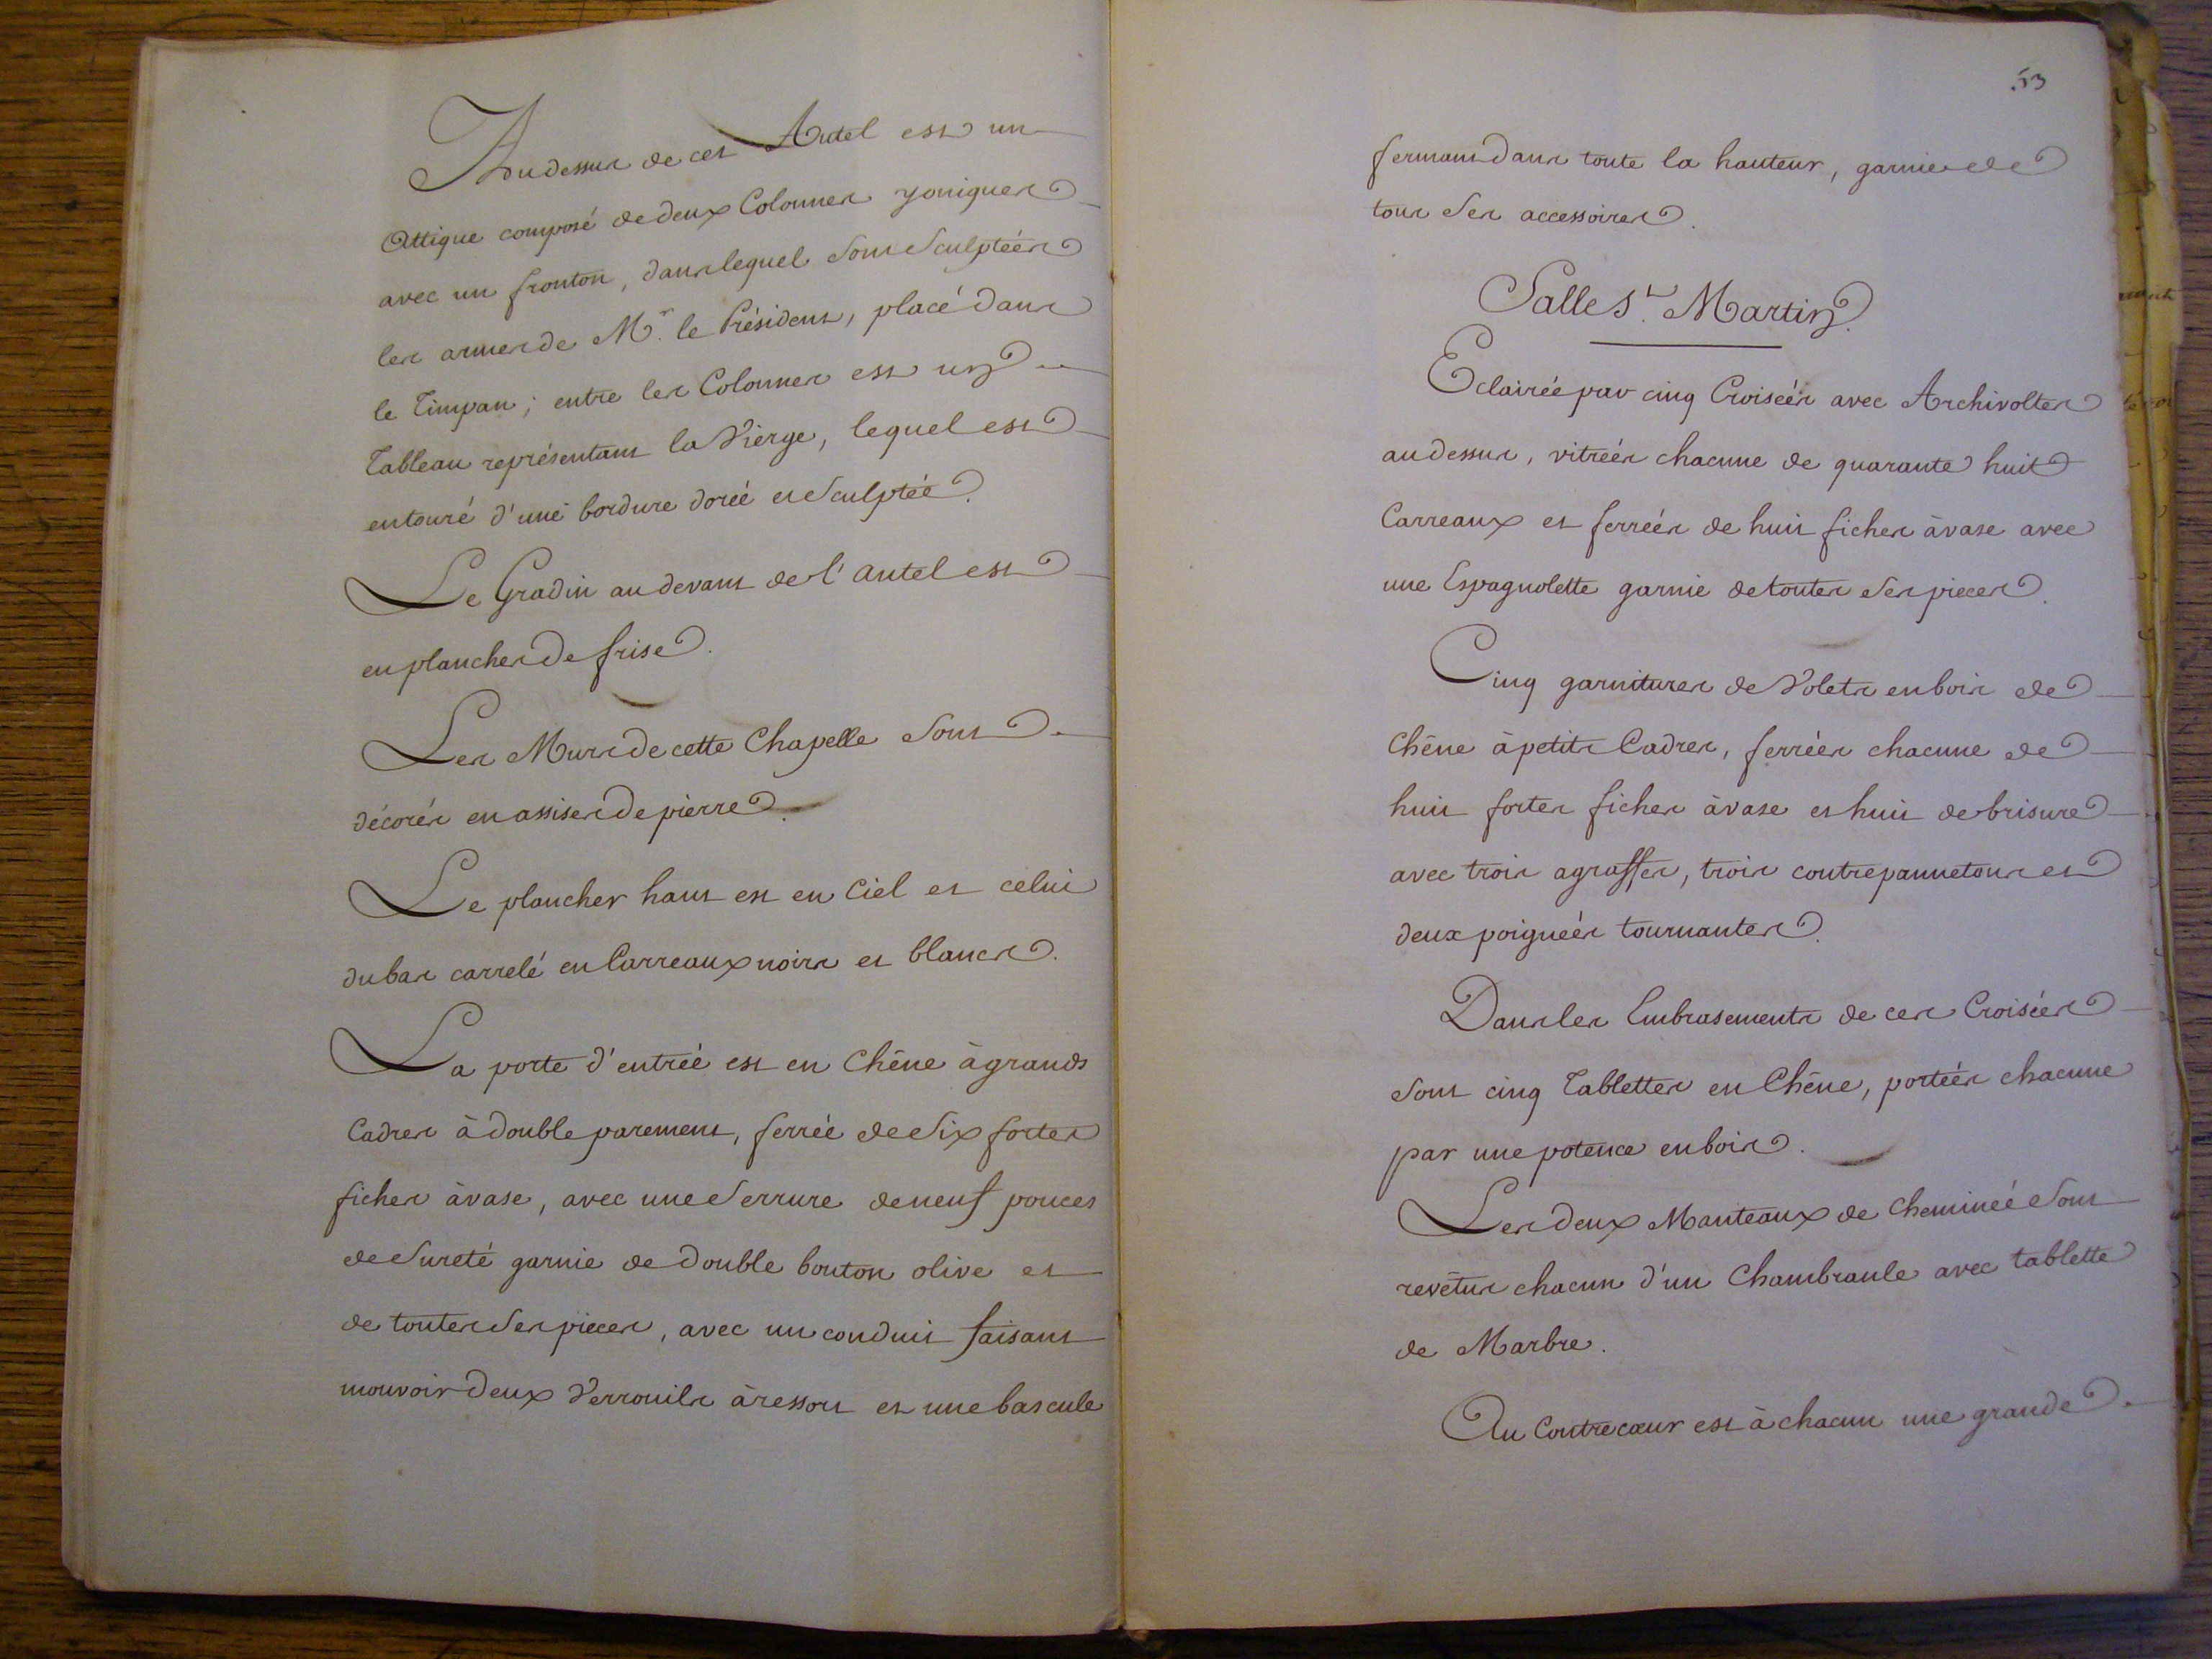 Au dessus de cet Autel est un
Attique composé de deux Colonnes yoniques
avec un fronton, dans lequel sont sculpteés
les armes de Mr. le Président, placé dans
le Timpan; entre les Colonnes est un
Tableau représentant la Vierge, lequel est
entouré d'une bordure doreé et sculpteé.
Le Gradin au devant de l'autel est
en planches de frise.
Les Murs de cette Chapelle sont
décorés en assises de pierre.
Le plancher haut est en Ciel et celui
du bas carrelé en Carreaux noirs et blancs.
La porte d'entreé est en Chêne à grands
Cadres à double parement, ferreé de six fortes
fiches à vase, avec une serrure de neuf pouces
de sureté garnie de double bouton olive et
de toutes ses pieces, avec un conduit faisant
mouvoir deux Verrouils à ressort et une bascule
53
fermant dans toute la hauteur, garnie de
tous ses accessoires.
Salle St. Martin.
Eclaireé par cinq Croiseés avec Archivoltes
au dessus, vitreés chacune de quarante huit
Carreaux et ferreés de huit fiches à vase avec
une Espagnolette garnie de toutes ses pieces.
Cinq garnitures de Volets en bois de
Chêne à petits Cadres, ferreés chacune de
huit fortes fiches à vase et huit de brisure
avec trois agraffes, trois contrepannetons et
deux poigneés tournantes.
Dans les Embrasements de ces Croiseés
sont cinq Tablettes en Chêne, porteés chacune
par une potence en bois.
Les deux Manteaux de Chemineé sont
revêtus chacun d'un Chambranle avec tablette
de Marbre.
Au Contrecoeur est à chacun une grande